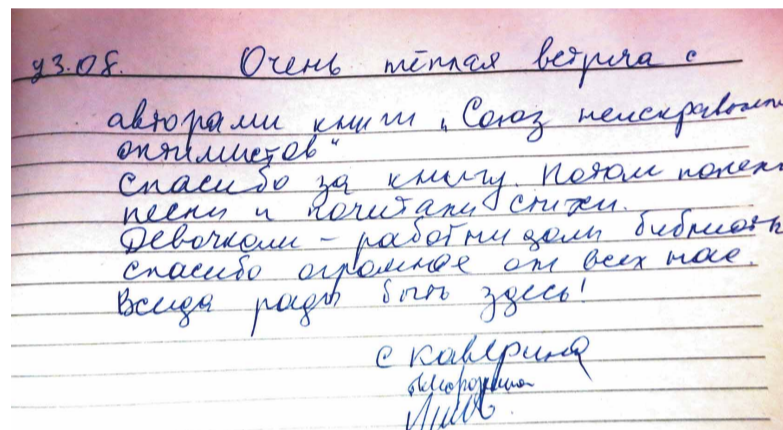 23.08. Очень тёплая встреча с
авторами книги "Союз неисправим
оптимистов"
Спасибо за книгу. Потом попели
песни и почитали стихи.
Девочкам - работницам библиотек
спасибо огромное от всех нас.
Всегда рады быть здесь!
С Каверина